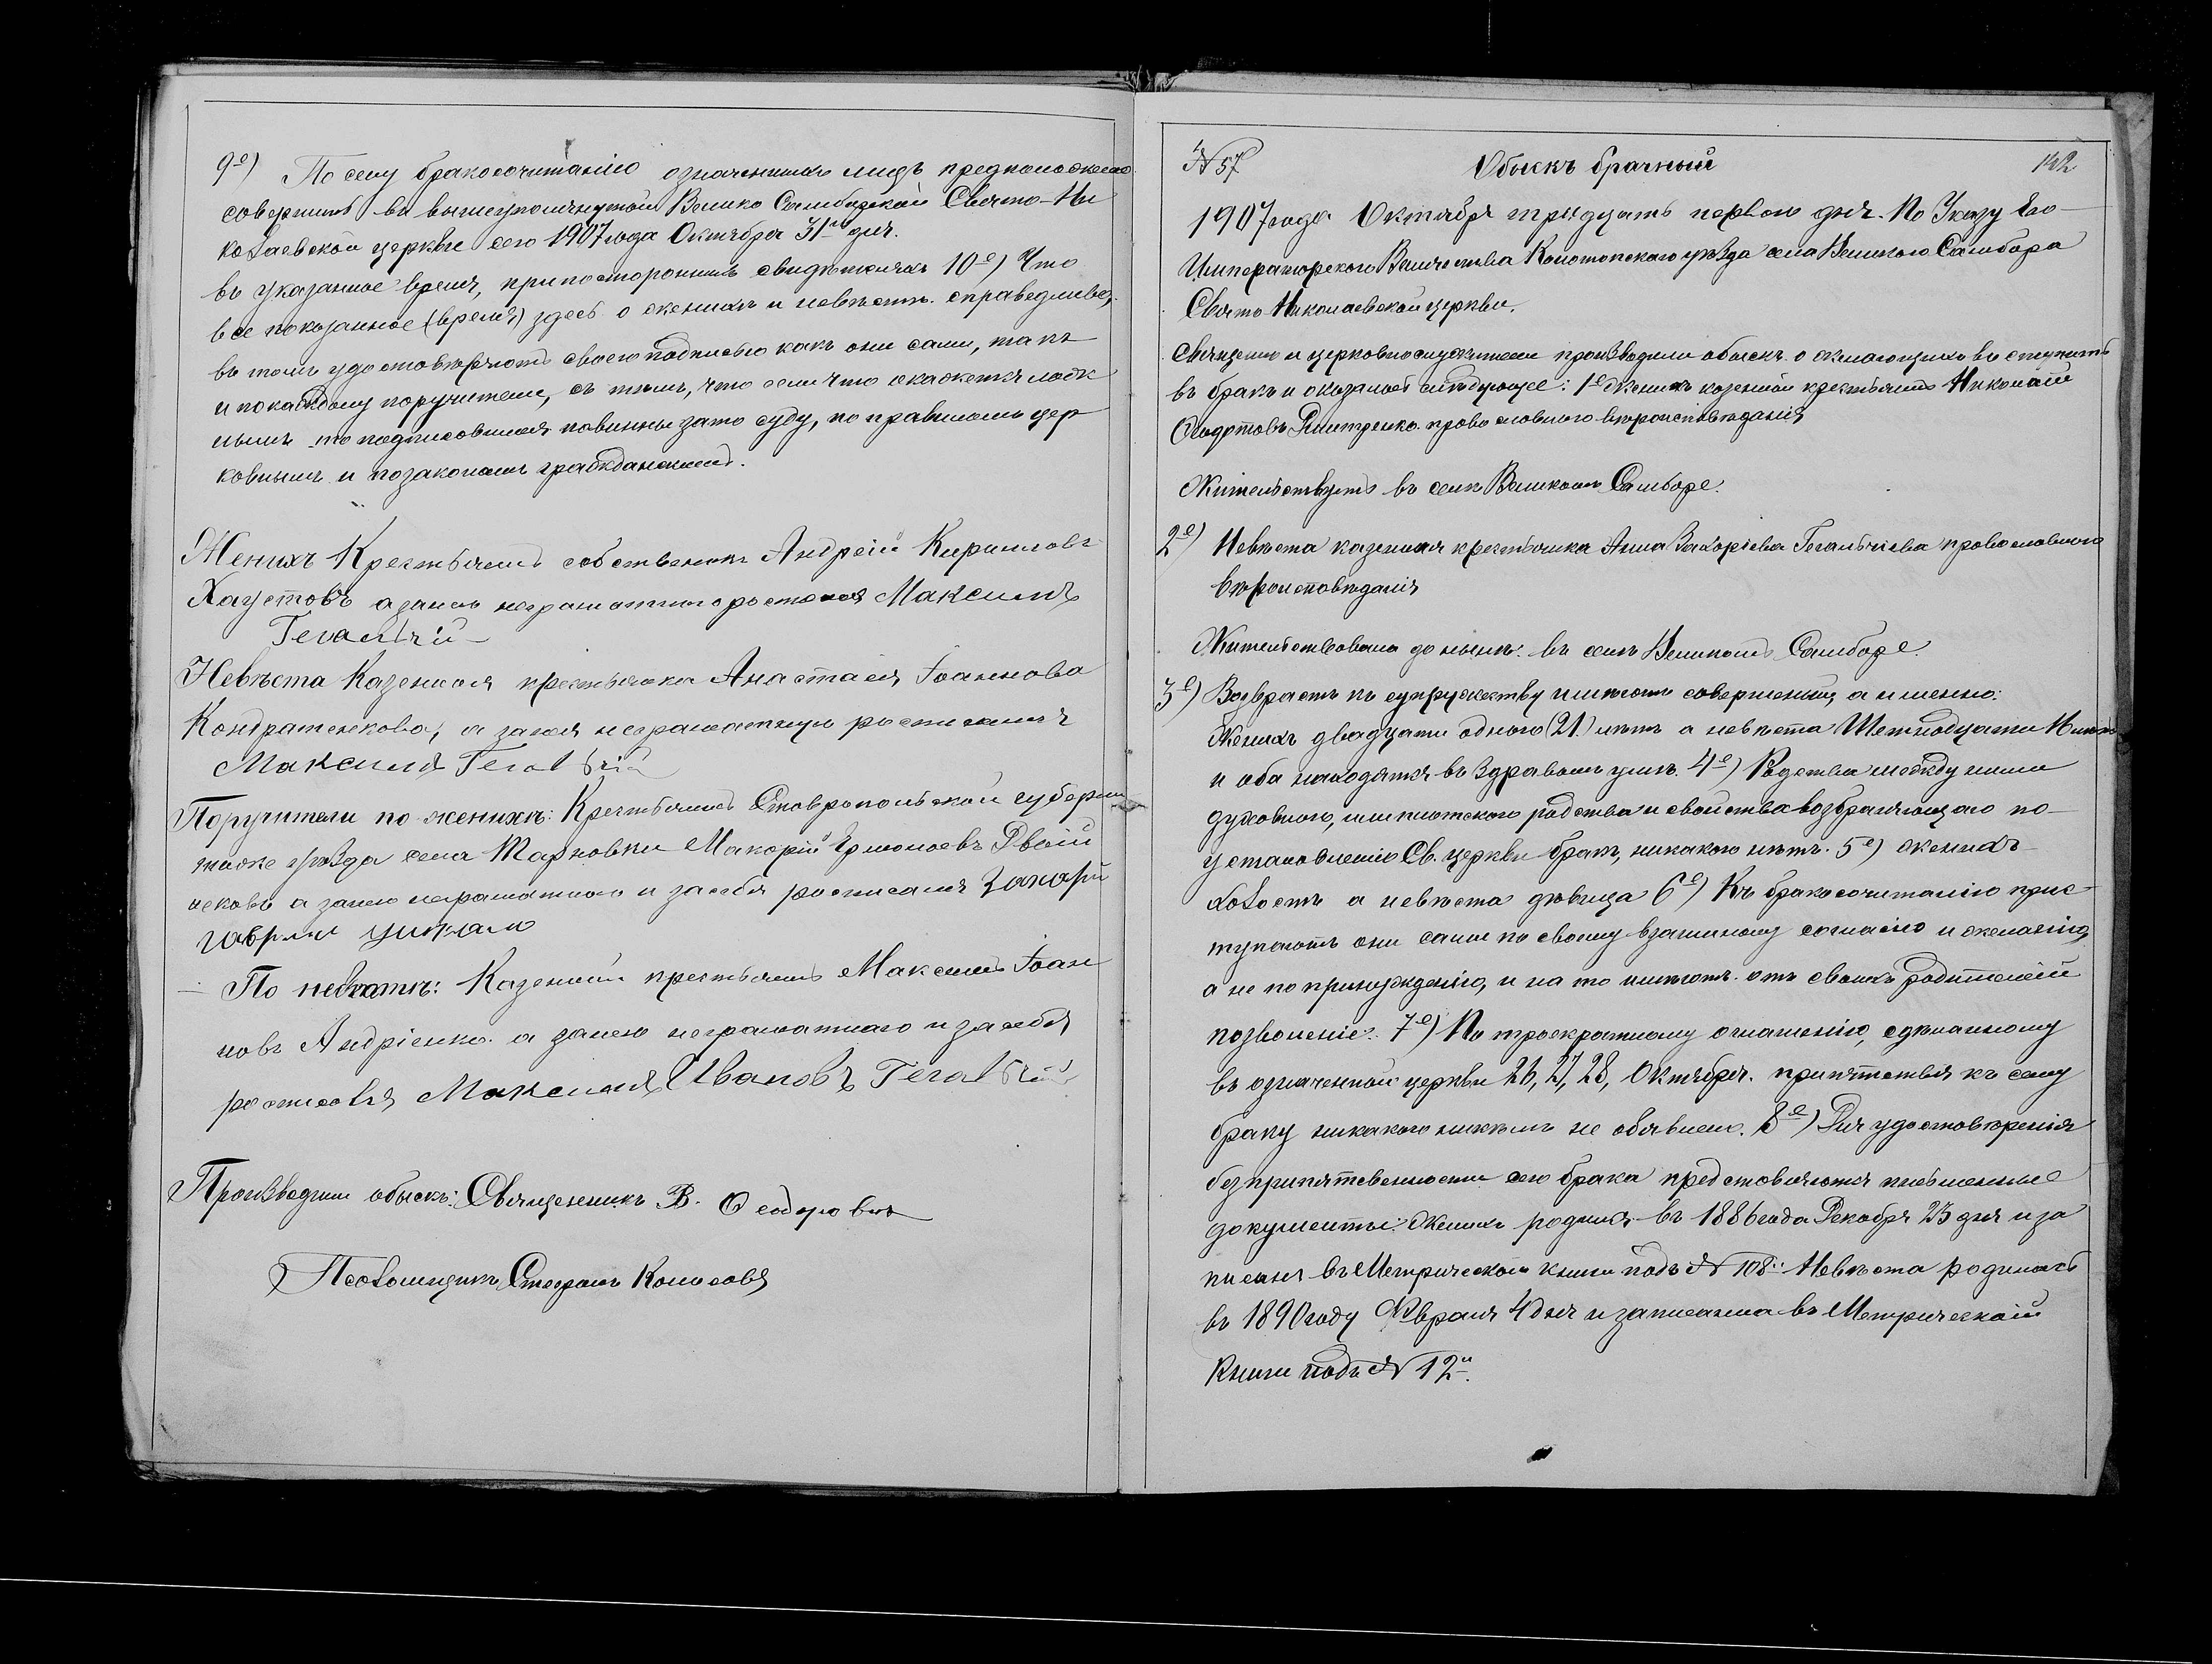 9е) По сему бракосочитанію означенныхъ лицъ предположено
совершить въ вышеупомянутой Велико Самборской Свято-Ни
колаевской церкви сего 1907 года Октября 31го дня.
въ указанное время, при постороннихъ свидѣтеляхъ 10е) Что
все показанное (время) здесь о женихѣ и невѣстѣ справедливо,
въ томъ удостовѣряютъ своею подписью какъ они сами, такъ
и по каждому поручители, съ тѣмъ, что если что окажется лож
нымъ то подписовшіеся повинны за то суду, по правиламъ цер
ковнымъ и по законамъ гражданскимъ.
Женихъ Крестьянинъ собственникъ Андрей Кирилловъ
Хаустовъ а за него неграматного росписался Максимъ
Гегальчій
Невѣста Казенная крестьянка Анастасія Іоаннова
Кондратенкова, а за нея неграматную росписался
Максимъ Гегальчій
Поручители по женихѣ: Крестьянинъ Ставропольской губерніи
того же уѣзда села Тарновки Макарій Ермолаевъ
а за него неграматного и за себя росписался Захарій
Гаврил
По невѣстѣ: Казенный крестьянинъ Максимъ Іоан
новъ Андріенко а за него неграматнаго и за себя
росписався Максимъ Ивановъ Гегальчій
Производили обыскъ: Священникъ В. Ѳеодоровъ
Псаломщикъ Стефанъ Колосовъ
№ 57 Обыскъ брачный 142
1907 года Октября тридцать первого дня. По Указу Его
Императорского Величества Конотопскаго уѣзда села Великого Самбора
Свято-Николаевской церкви.
Священно и церковнослужители производили обыскъ о желающихъ вступить
въ бракъ и оказалось слѣдующее: 1е женихъ казенный крестьянинъ Николай
Ѳеодотовъ Дмитренко православного вѣроисповѣданія
Жительствуетъ въ селѣ Великомъ Самборе.
2е) Невѣста казенная крестьянка Анна Захаріева Гегальчіева провославного
вѣроисповѣданія
Жительствовала до нынѣ въ селѣ Великомъ Самборе.
3е) Возврастъ къ супружеству имѣютъ совершенный, а именно:
Женихъ двадцати одного (21) лѣтъ а невѣста
и оба находятся въ здравомъ умѣ. 4е) Родства между ними
духовного, или плотского родства и свойства возбраняющаго по
установленію Св. церкви бракъ, никакого нѣтъ. 5е) женихъ
холостъ а невѣста дѣвица 6е) Къ бракосочитанію прис
тупаютъ они сами по своему взаимному согласію и желанію,
а не по принужденію, и на то имѣютъ отъ своихъ родителей
позволеніе. 7е) По троекратному оглашенію, сдѣланному
въ означенной церкви 26, 27, 28, Октября. припятствія къ сему
браку никакого никѣмъ не объявлено. 8е) Для удостовѣренія
безприпятственности сего брака предстовляются письменные
документы: Женихъ родился въ 1886 года Декабря 23 дня и за
писанъ въ Метрической книги подъ № 108. Невѣста родилась
въ 1890 году Февраля 4 дня и записанна въ Метрической
книги подъ № 12м.